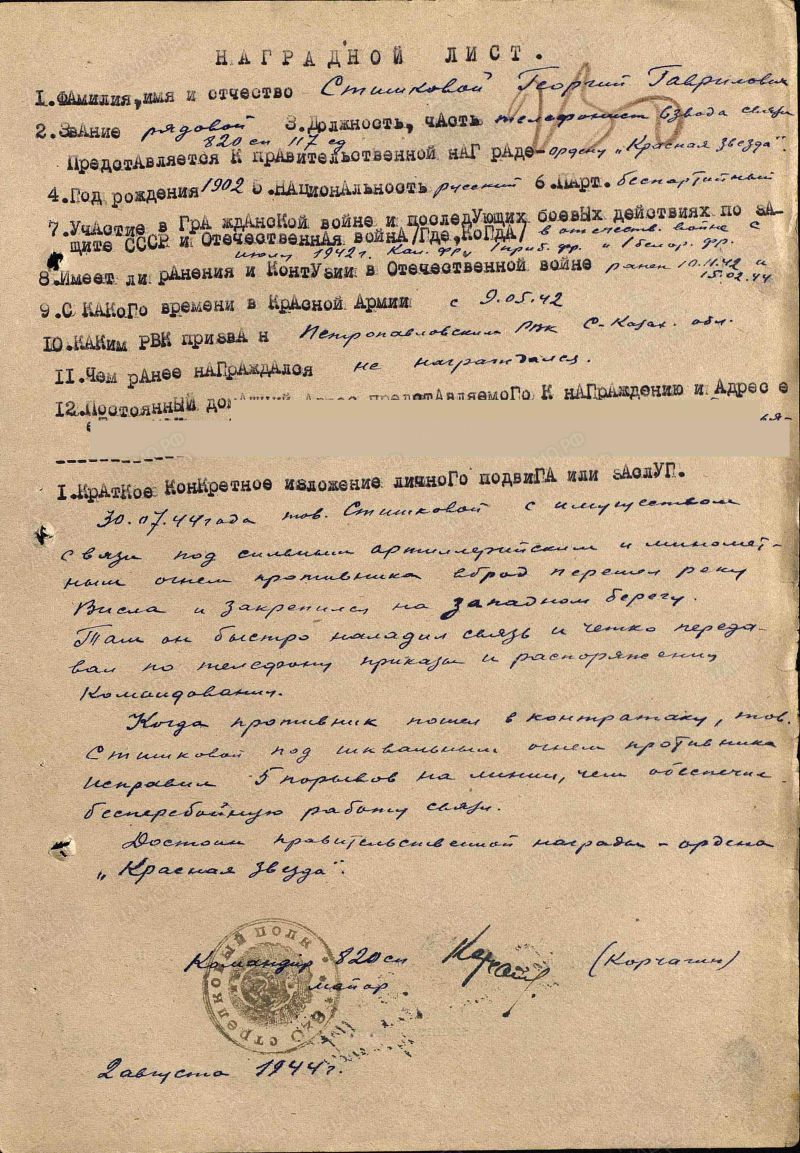 НАГРАДНОЙ ЛИСТ.
1.Фамилия,имя и отчество Стишковой Георгий Гаврилович
2.Звание рядовой 3.Должность, часть телефонист взвода связи
820 сп 117 сд
Представляется к правительственной наг раде-ордену „Красная звезда".
4.Год рождения 1902 5.Национальность русский 6.Парт. беспартийный
7.Участие в Гра жданской войне и последующих боевых действиях по за-
щите СССР и Отечественная война/Где,когда/ в отечеств. войне с
июля 1942г. Кал. фр. 1 приб. фр. и 1 белор. фр.
8.Имеет ли ранения и контузии в Отечественной войне ранен 10.11.42 и
15.02.44
9.С какого времени в Красной Армии с 9.05.42
10.Каким РВК призва н Петропавловским РВК С-Казах. обл.
11.Чем ранее награждался не награждался.
12.Постоянный домашний адрес представляемого к награждению и адрес е
ья-
I.Краткое конкретное изложение личного подвига или заслуг.
30.07.44 года тов. Стишковой с имуществом
связи под сильным артиллерийским и миномет-
ным огнем противника вброд перешел реку
Висла и закрепился на западном берегу.
Там он быстро наладил связь и четко переда-
вал по телефону приказы и распоряжения
командования.
Когда противник пошел в контратаку, тов.
Стишковой под шквальным огнем противника
исправил 5 порывов на линии, чем обеспечил
бесперебойную работу связи.
Достоин правительственной награды – ордена
„Красная звезда".
Командир 820 сп (Корчагин)
майор
820 стрелковый полк
2 августа 1944г.